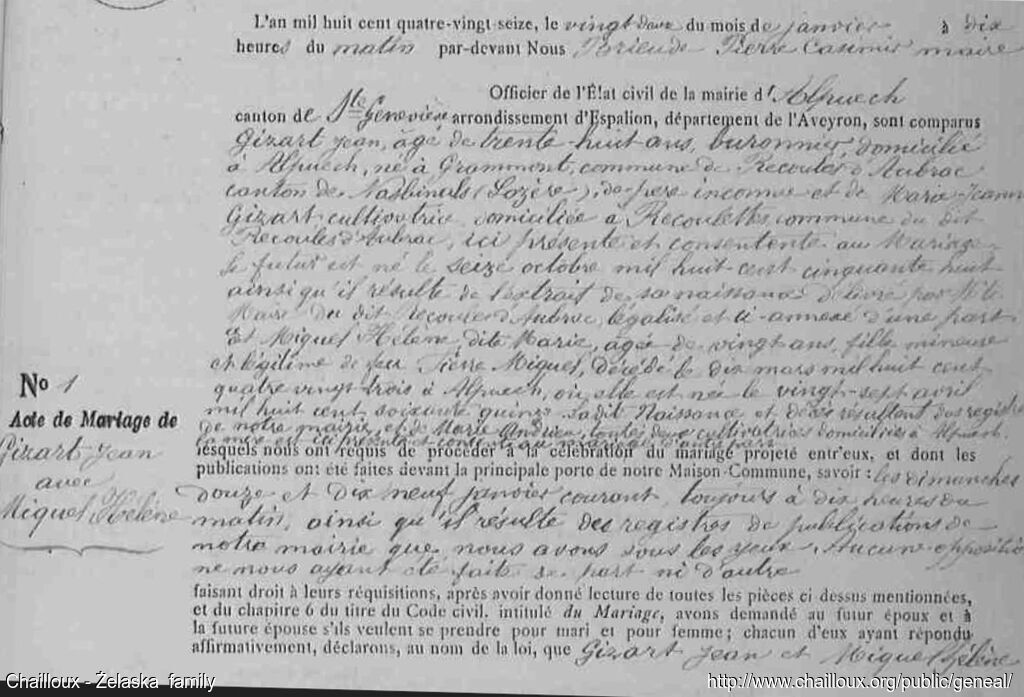 L'an mil huit cent quatre-vingt seize, le vingt deux du mois de janvier à dix
heures du matin par-devant Nous Brieude Pierre Casimir maire
Officier de l'État civil de la mairie d'Alpuech
canton de Ste Geneviève arrondissement d'Espalion, département de l'Aveyron, sont comparus
Gizart Jean, âgé de trente-huit ans, buronnier, domicilié
à Alpuech, né à Grammont, commune de Recoules d'Aubrac
canton de Nasbinals (Lozère), de père inconnu et de Marie-Jeanne
Gizart cultivatrice domiciliée à Recoulettes commune du dit
Recoules d'Aubrac, ici présente et consentente au Mariage
le futur est né le seize octobre mil huit cent cinquante huit
ainsi qu'il résulte de l'extrait de sa naissance délivré par Mr le
Maire du dit Recoules d'Aubrac, légalisé et ci-annexé d'une part
Et Miquel Hélène, dite Marie, âgée de vingt ans, fille mineure
et légitime de feu Pierre Miquel, décédé le dix mars mil huit cent
quatre vingt trois à Alpuech, où elle est née le vingt-sept avril
mil huit cent soixante quinze sa dit Naissance et décès résultant des registres
de notre mairie, et de Marie Andrieu, toutes deux cultivatrices domiciliées à Alpuech.
la mère est ici présente et consent au mariage d'autre part
lesquels nous ont requis de procéder à la célébration du mariage projeté entr'eux, et dont les
publications ont été faites devant la principale porte de notre Maison-Commune, savoir : les dimanches
douze et dix neuf janvier courant, toujours à dix heures du
matin, ainsi qu'il résulte des registres de publications de
notre mairie que nous avons sous les yeux. Aucune opposition
ne nous ayant été faite de part ni d'autre
faisant droit à leurs réquisitions, après avoir donné lecture de toutes les pièces ci dessus mentionnées,
et du chapitre 6 du titre du Code civil, intitulé du Mariage, avons demandé au futur époux et à
la future épouse s'ils veulent se prendre pour mari et pour femme ; chacun d'eux ayant répondu
affirmativement, déclarons, au nom de la loi, que Gizart Jean et Miquel Hélène
No 1
Acte de Mariage de
Gizart Jean
avec
Miquel Hélène
Chailloux - Żelaska family
http://www.chailloux.org/public/geneal/